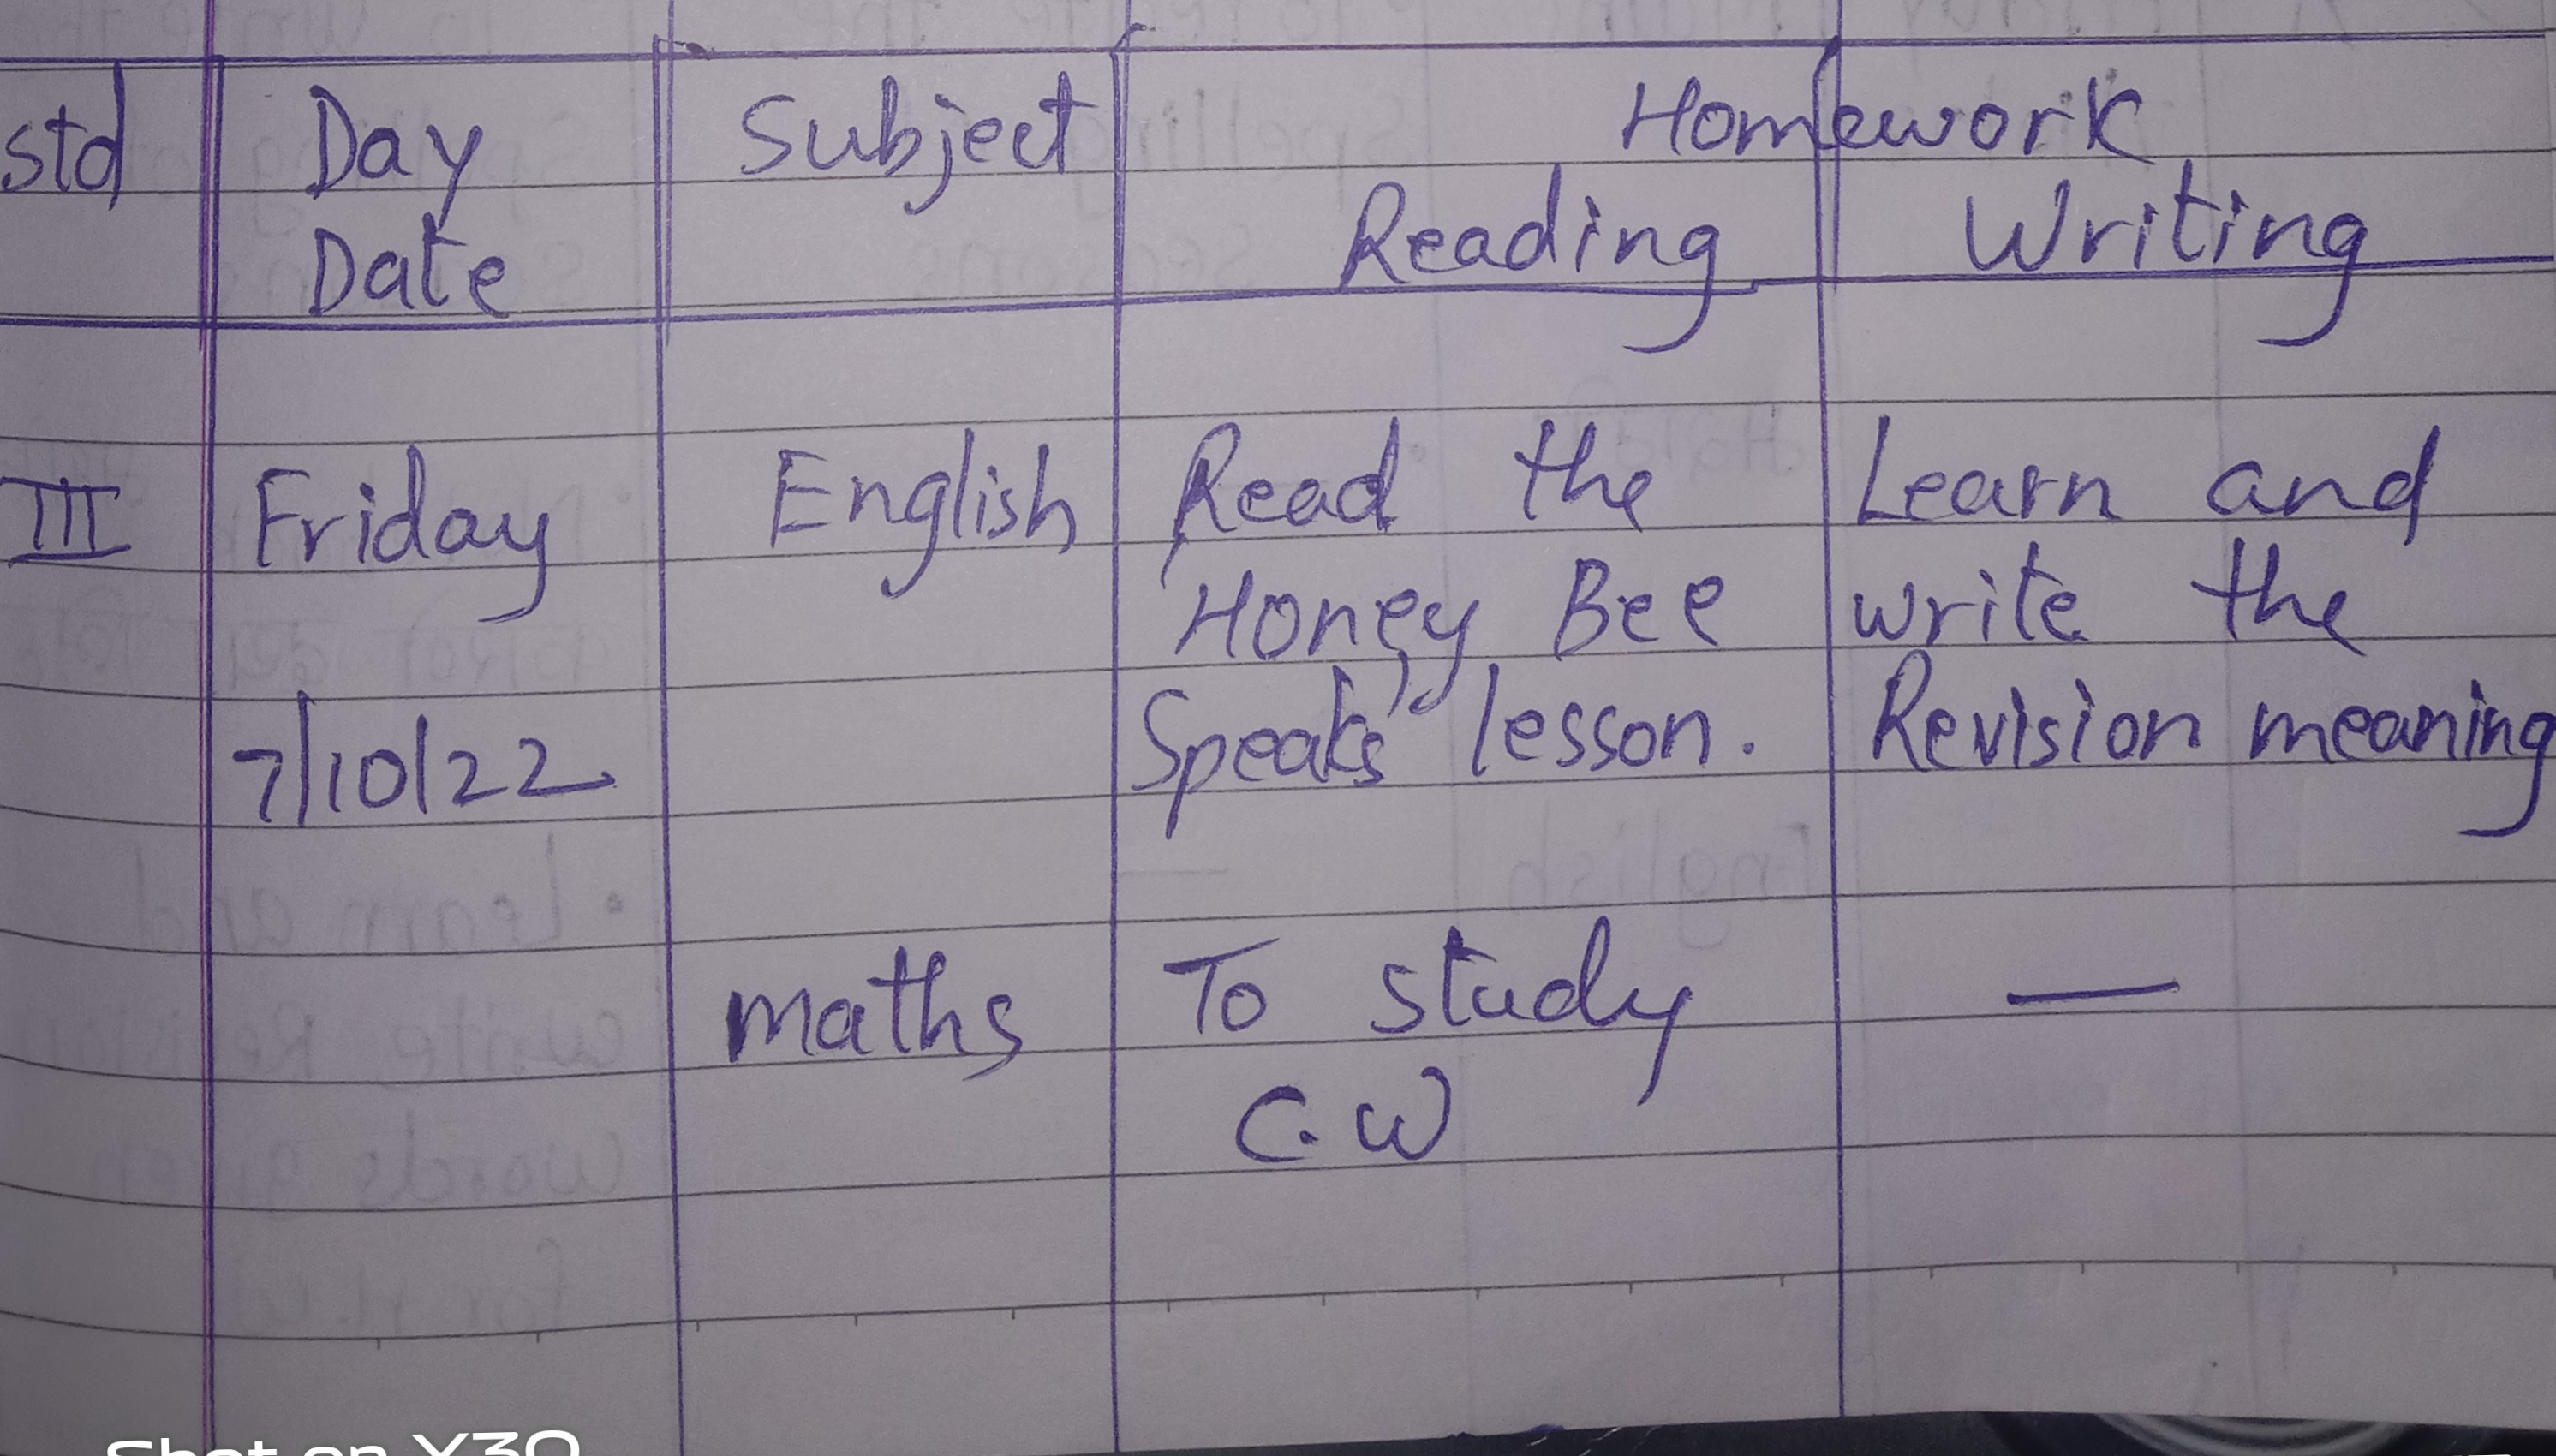 Homework
std Day Subject Reading Writing
Date
III Friday English Read the Learn and
Honey Bee write the
7/10/22 Speaks" lesson. Revision meaning
maths To study —
C.W
Shot on Y30